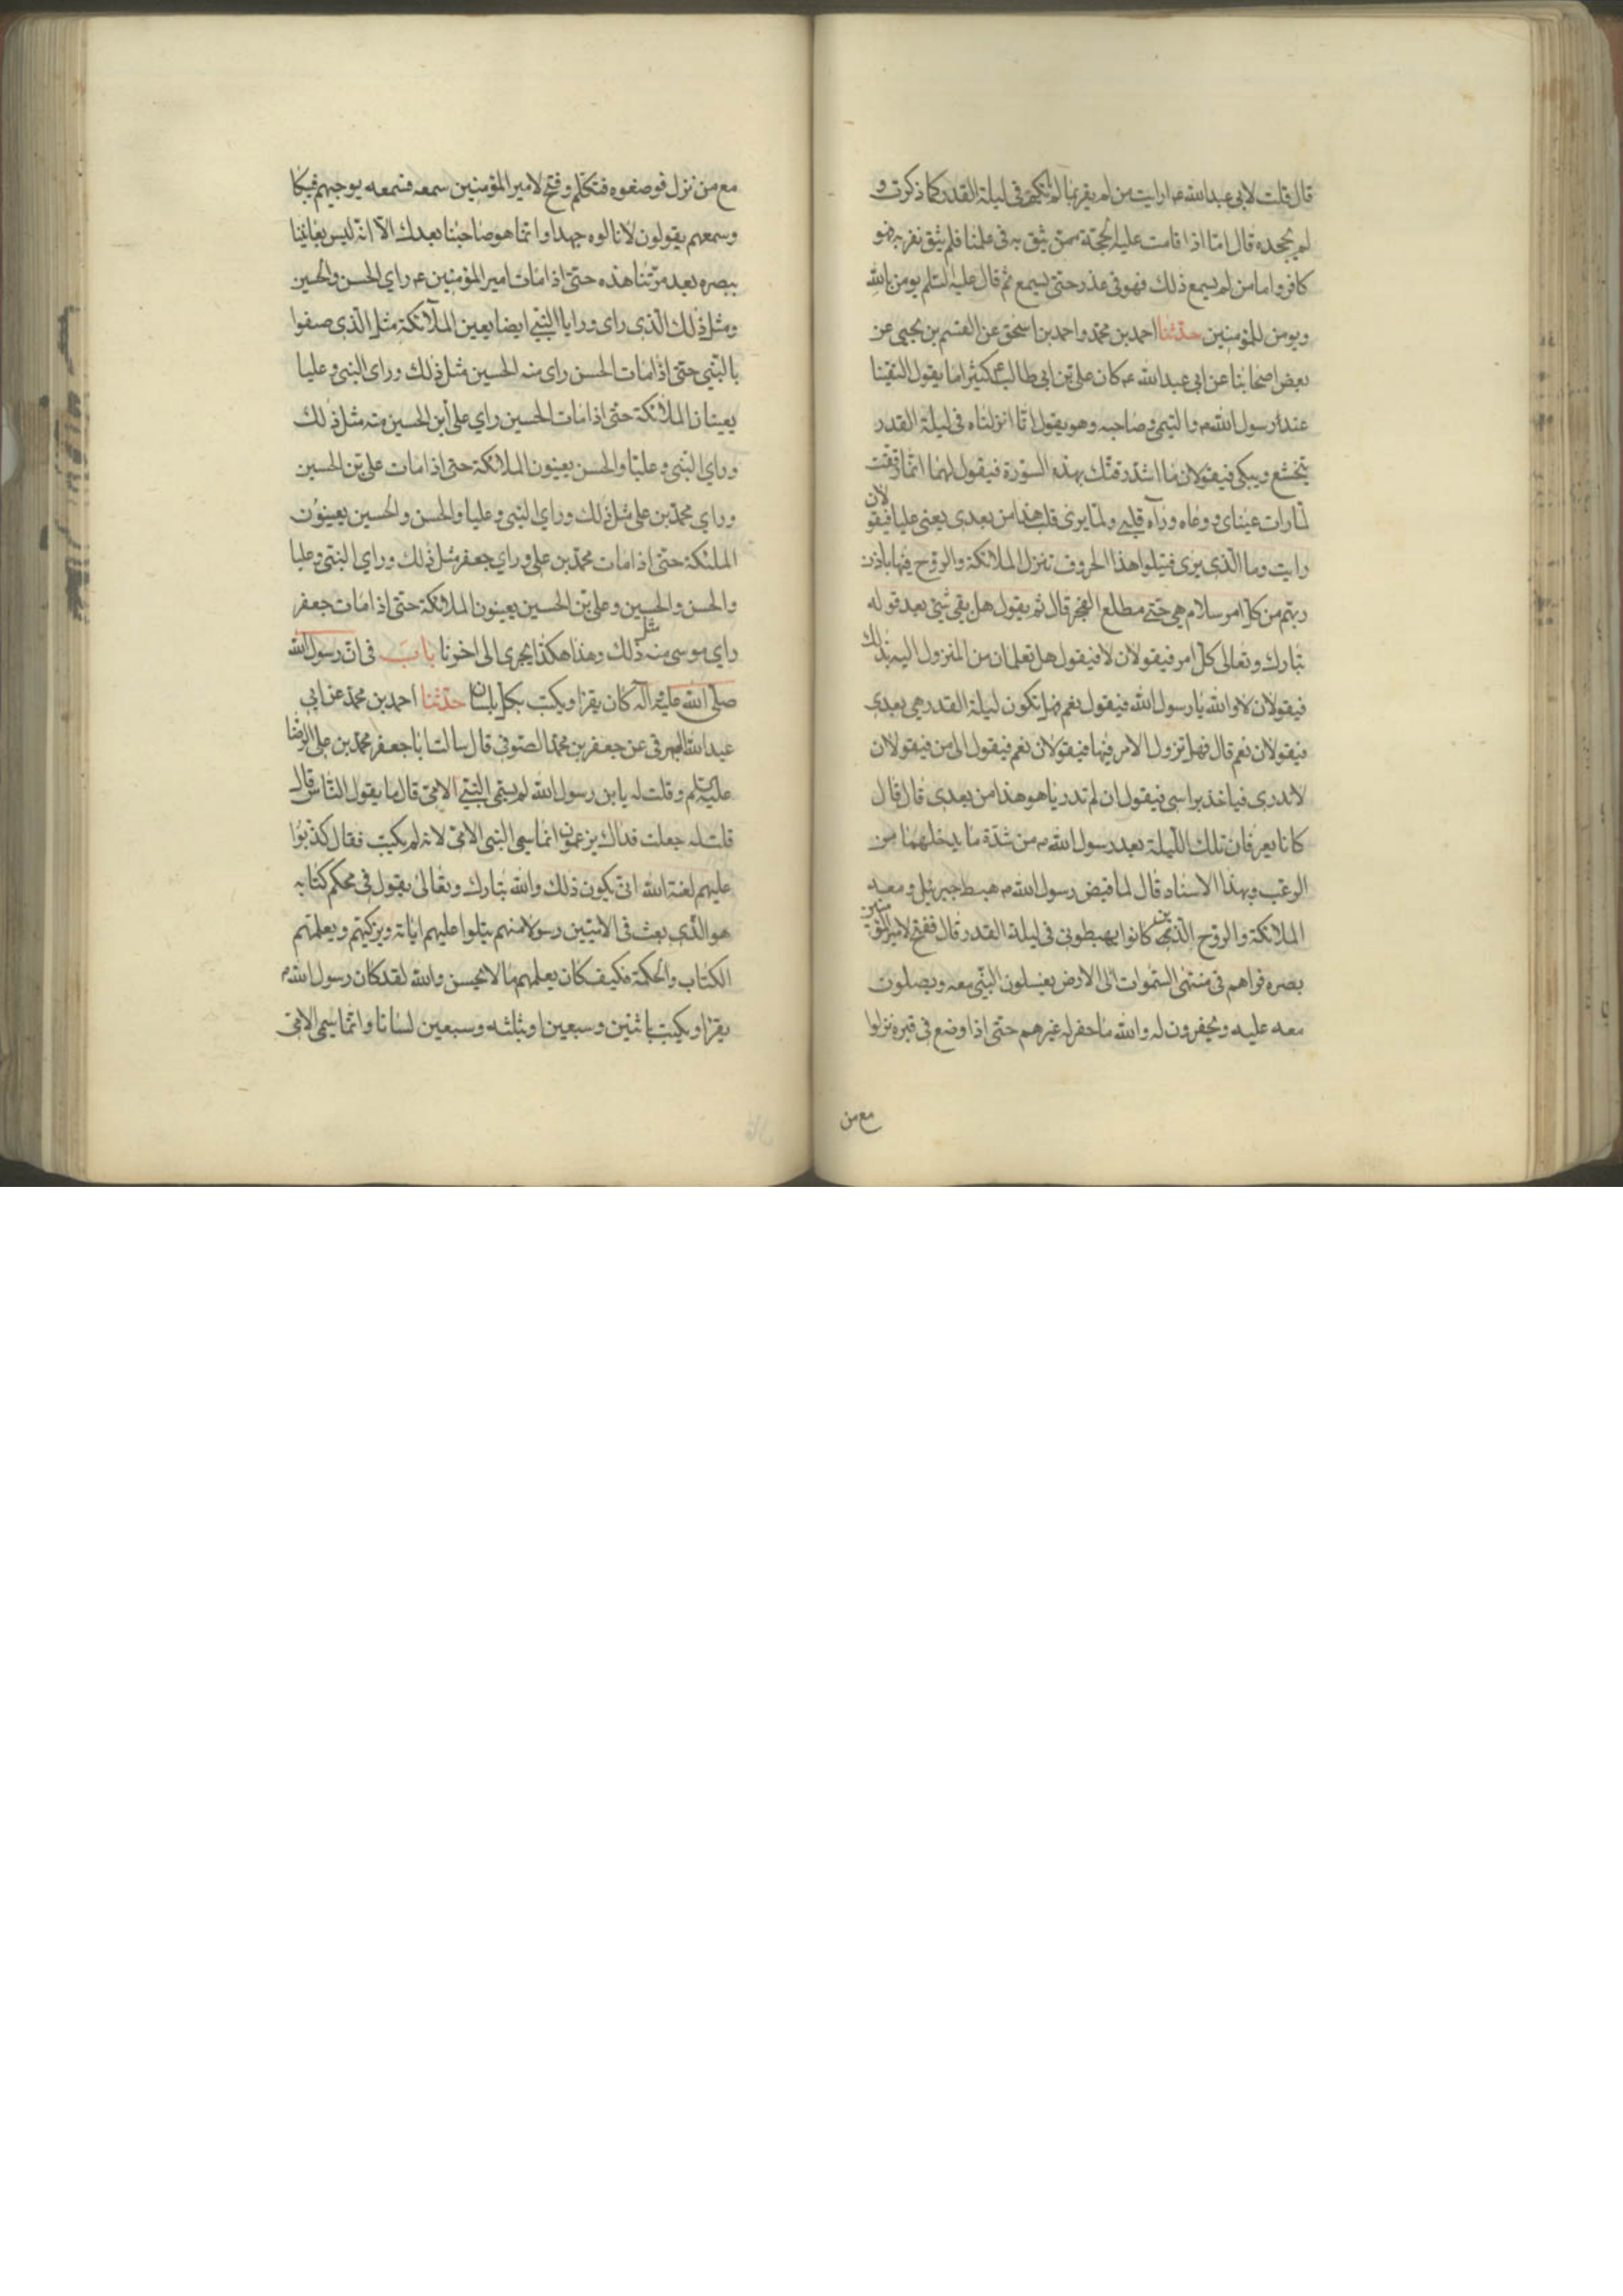 قال قلت لابي عبدالله ع ارايت من لم يقر بما لكم في ليلة القدر كما ذكرت و
لم يجحده قال امّا اذا قامت عليه الحجّة ممن يثق به في علمنا فلم يثق به فهو
كافر واما من لم يسمع ذلك فهو في عذر حتى يسمع ثم قال عليه السّلم يومن بالله
ويومن للمؤمنين حدّثنا احمد بن محمّد واحمد بن اسحق عن القسم بن يحيى عن
بعض اصحابنا عن ابي عبدالله ع كان علي بن ابي طالب ع كثيرا ما يقول التقينا
عند رسول الله ص والتيمي وصاحبه وهو يقول انّا انزلناه في ليلة القدر
يتخشع ويبكي فيقولان ما اشدّ رقتك بهذه السّورة فيقول لهما انّما رققت
لما رات عيناي ووعاه ورآه قلبي ولما يرى قلب هذا من بعدي يعني عليا فيقولان
رايت وما الّذي يرى فيتلوا هذا الحروف تنزل الملائكة والروح فيها باذن
ربهم من كل امر سلام هي حتى مطلع الفجر قال ثم يقول هل بقي شيّ بعد قوله
تبارك وتعالى كلّ امر فيقولان لا فيقول هل تعلمان من المنزول اليه بذلك
فيقولان لا والله يا رسول الله فيقول نعم فهل تكون ليلة القدر هي بعدي
فيقولان نعم قال فهل تزول الامر فيها فيقولان نعم فيقول الى من فيقولان
لا ندري فياخذ براسي فيقول ان لم تدريا هو هذا من بعدي قال قال
كانا يعرفان تلك اللّيلة بعد رسول الله ص من شدّة ما يدخلهما من
الرعب وبهذا الاسناد قال لما قبض رسول الله ص هبط جبرئيل ومعه
الملائكة والروح الّذين كانوا يهبطون في ليلة القدر قال ففتح لامير المؤمنين
بصره فراهم في منتهى السّموات الى الارض يغسلون النّبي معه ويصلون
معه عليه ويحفرون له والله ما حفر له غيرهم حتى اذا وضع في قبره نزلوا
مع من
مع من نزل فوصفوه فتكلّم وفتح لامير المؤمنين سمعه فسمعه يوجيهم فبكا
وسمعهم يقولون لانالوه جهدا وانّما هو صاحبنا بعدك الّا انّه ليس يعايننا
ببصره بعد مرّتنا هذه حتّى اذا مات امير المؤمنين ع راي الحسن والحسين
ومثل ذلك الّذي راى ورايا النّبي ايضا يعين الملآئكة مثل الّذي صفوا
بالنّبي حتى اذا مات الحسن راى منه الحسين مثل ذلك وراى النبي وعليا
يعينان الملائكة حتّى اذا مات الحسين راي علي ابن الحسين منه مثل ذلك
وراي النّبي وعليّا والحسن يعينون الملائكة حتى اذا مات علي بن الحسين
وراي محمّد بن علي مثل ذلك وراي النبي وعليا والحسن والحسين يعينون
الملئكة حتى اذا مات محمّد بن علي وراي جعفر مثل ذلك وراي النبّي وعليا
والحسن والحسين وعلي بن الحسين يعينون الملائكة حتّى اذا مات جعفر
راي موسى منه مثل ذلك وهذا هكذا يجري الى اخرنا باب في انّ رسول الله
صلّى الله عليه واله كان يقرا ويكتب بكلّ لسان حدّثنا احمد بن محمّد عن ابي
عبد الله البرقي عن جعفر بن محمّد الصّوفي قال سالت ابا جعفر محمّد بن علي الرضا
عليه السّلم وقلت له يا بن رسول الله لم سمّي النّبي الامّي قال ما يقول النّاس قال
قلت له جعلت فداك يزعمون انّما سمي النبي الامّي لانه لم يكتب فقال كذبوا
عليهم لعنة الله انّى يكون ذلك والله تبارك وتعالى يقول في محكم كتابه
هو الّذي بعث في الاميّين رسولا منهم يتلوا عليهم اياته ويزكّيهم ويعلمهم
الكتاب والحكمة فكيف كان يعلمهم ما لا يحسن والله لقد كان رسول الله ص
يقرا ويكتب باثنين وسبعين او بثلثه وسبعين لسانا وانّما سمي الامّي